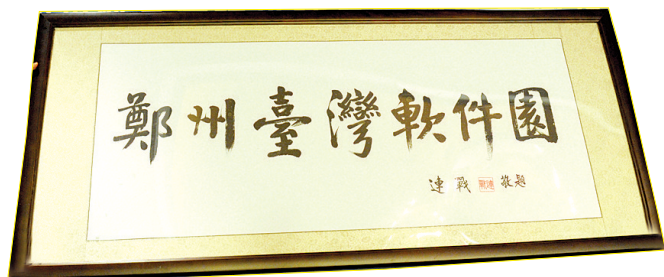 鄭州臺灣軟件園
連戰 敬題